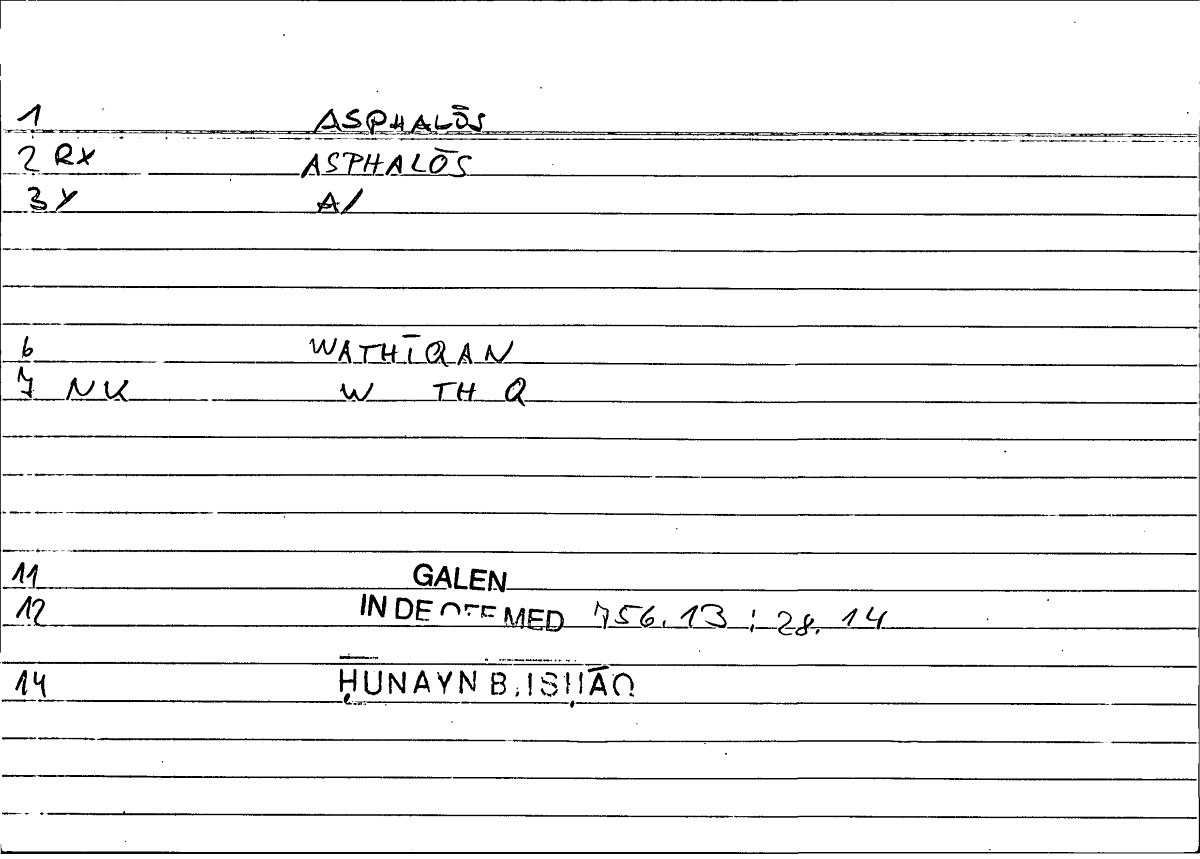 1 ASPHALŌS
2 RX ASPHALŌS
3 Y A/
6 WATHĪQAN
7 NK W TH Q
11 GALEN
12 IN DE OFF MED 756.13 ; 28.14
14 ḤUNAYN B. ISḤĀQ